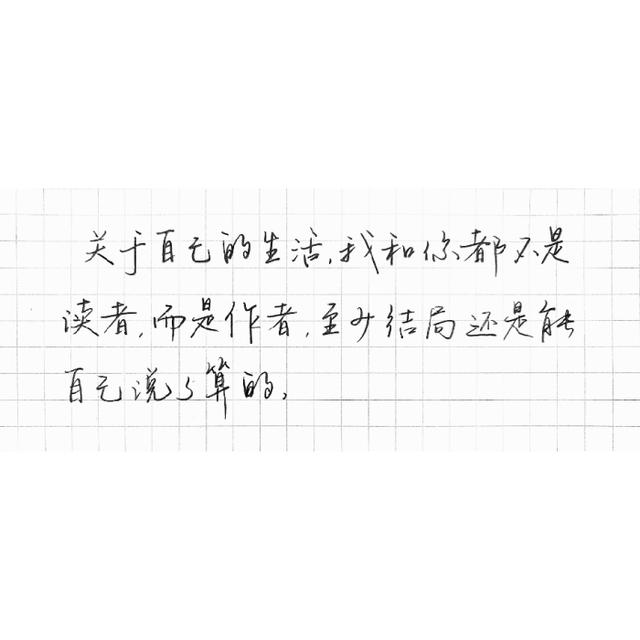 关于自己的生活,我和你都不是
读者,而是作者,至少结局还是能
自己说了算的,